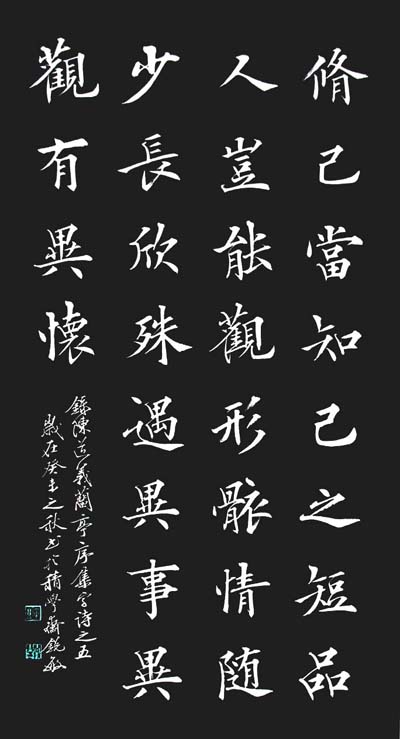 脩己當知己之短品
人豈能觀形骸情随
少長欣殊遇異事異
觀有異懷
錄陳道義蘭亭序集字詩之五
歲在癸未之秋书於積學齋銳敏